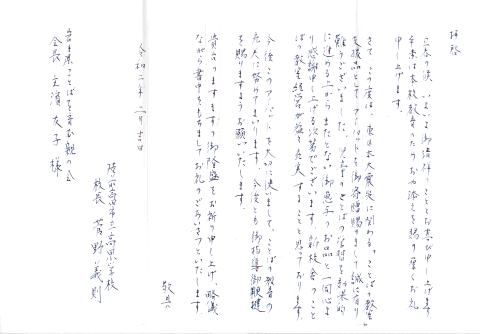 拝啓
立春の候、いよいよ御清祥のこととお喜び申し上げます
平素は本校教育のためお力添えを賜り厚くお礼
申し上げます。
さて、この度は、東日本大震災に関わる「ことばの教室」
支援品としてアイパッドを御寄贈賜りまして誠に有り
難うございました。児童のことばの学習を効果的
に進める上からまたとない御恵与のお品と一同心よ
り感謝申し上げる次第でございます。新校舎のこと
ばの教室経営が益々充実することと思っております。
今後このアイパッドを大切に使いまして、ことばの教育の
充実に努めてまいります。今後とも御指導御鞭撻
を賜りますようお願いいたします。
貴会のますますの御隆盛をお祈り申し上げ、略儀
ながら書中をもちましてお礼のごあいさつといたします
敬具
令和二年二月吉日
陸前高田市立高田小学校
校長 菅野義則
岩手県ことばを育む親の会
会長 立濱友子様